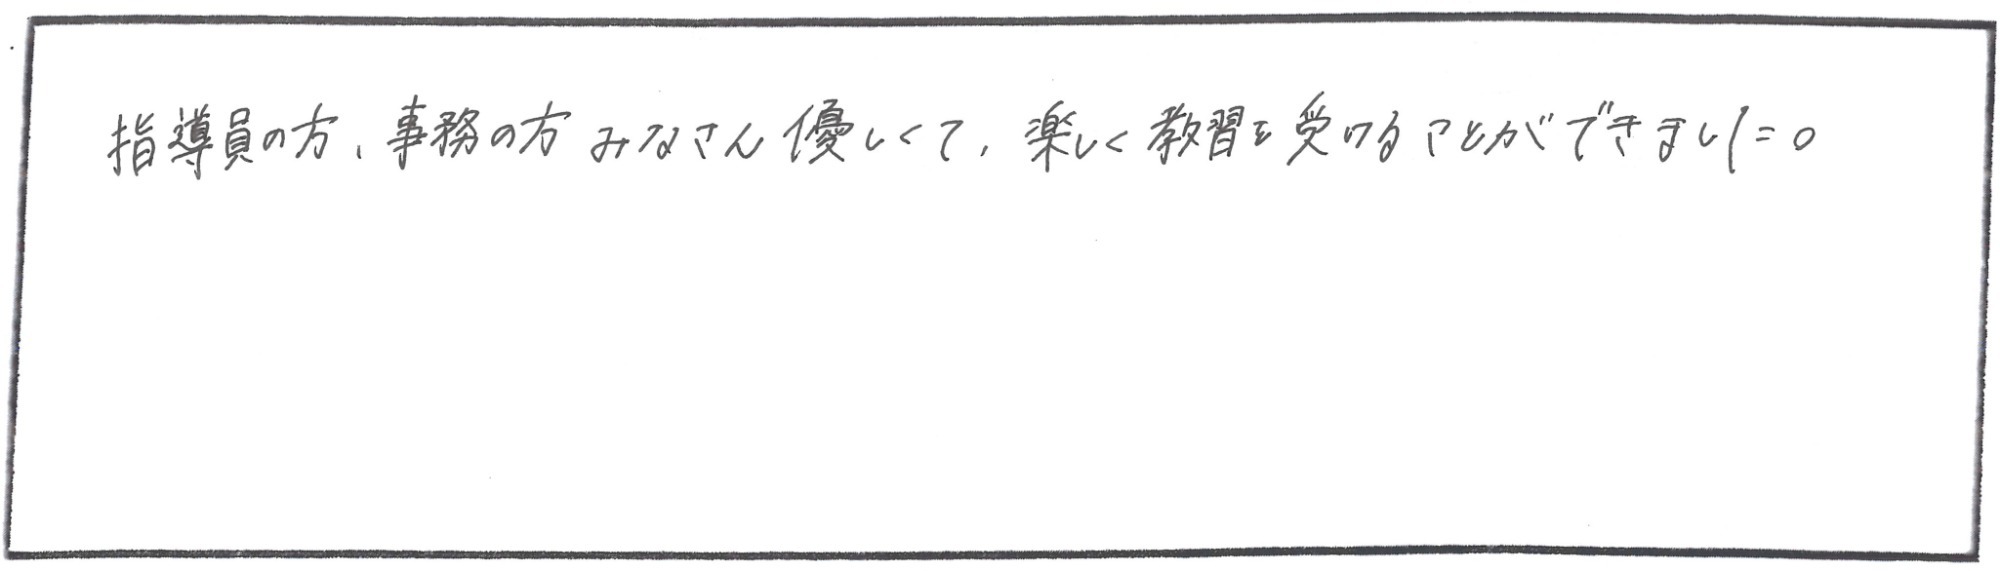 指導員の方、事務の方みなさん優しくて、楽しく教習を受けることができました。